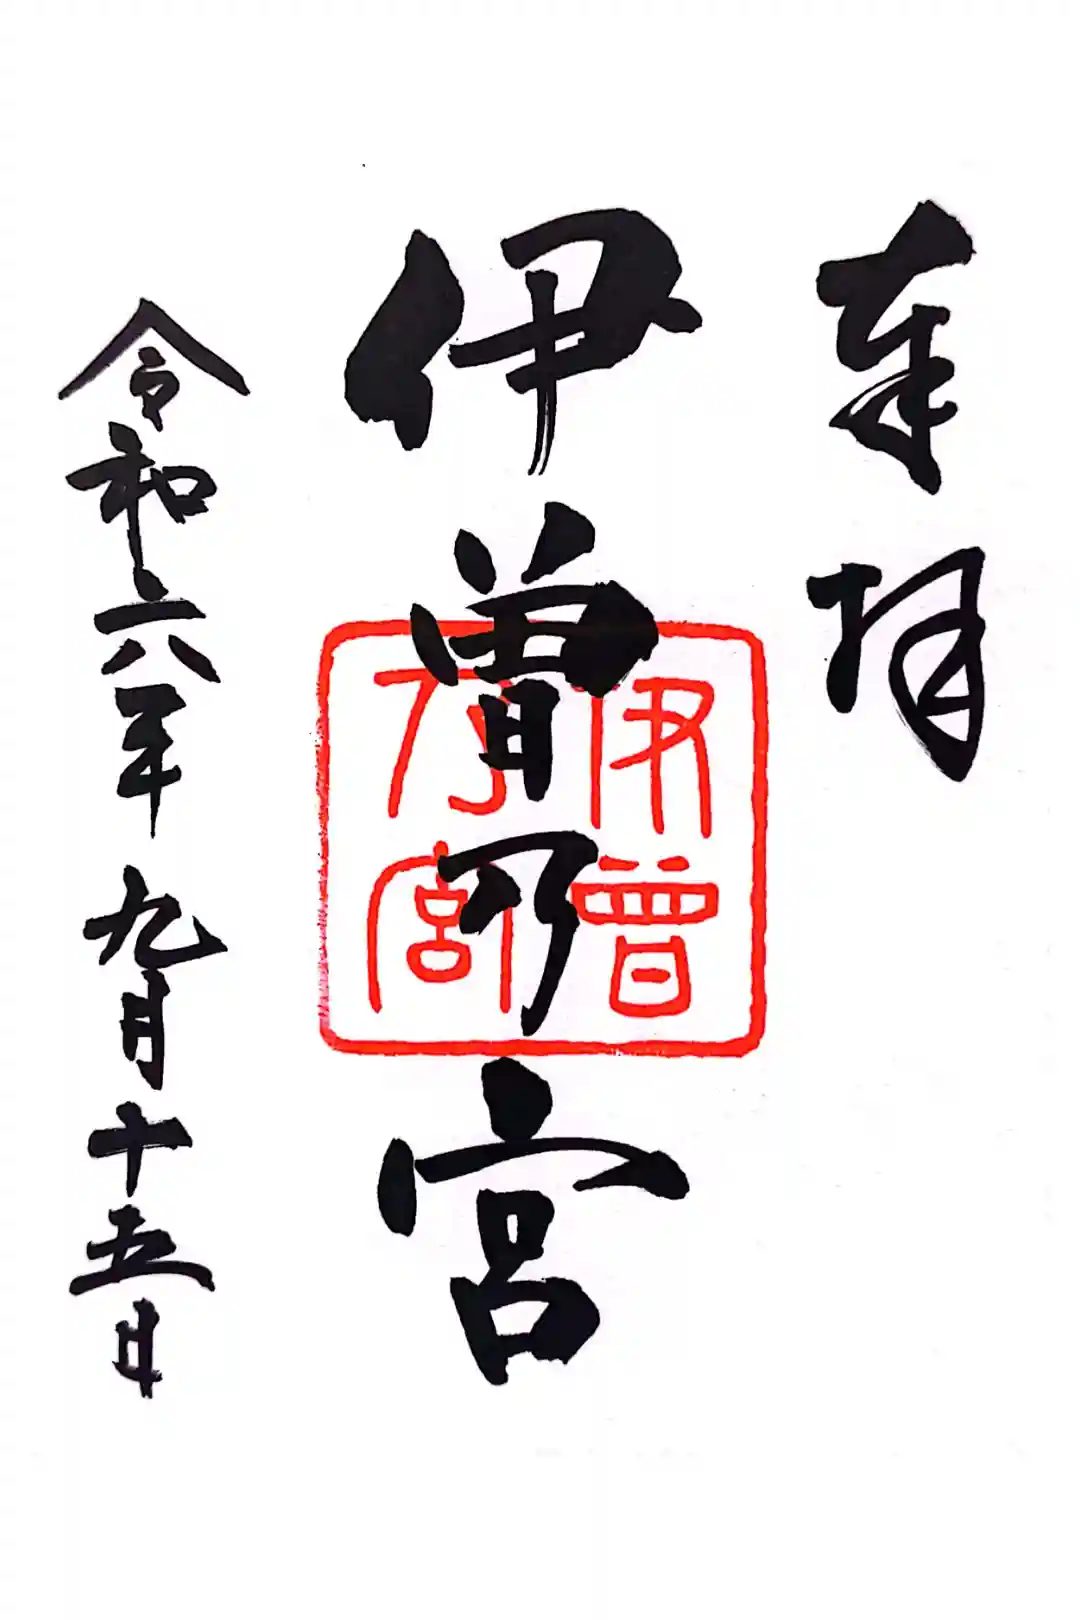 奉拝
伊曽乃宮
伊曽乃宮
令和六年九月十五日